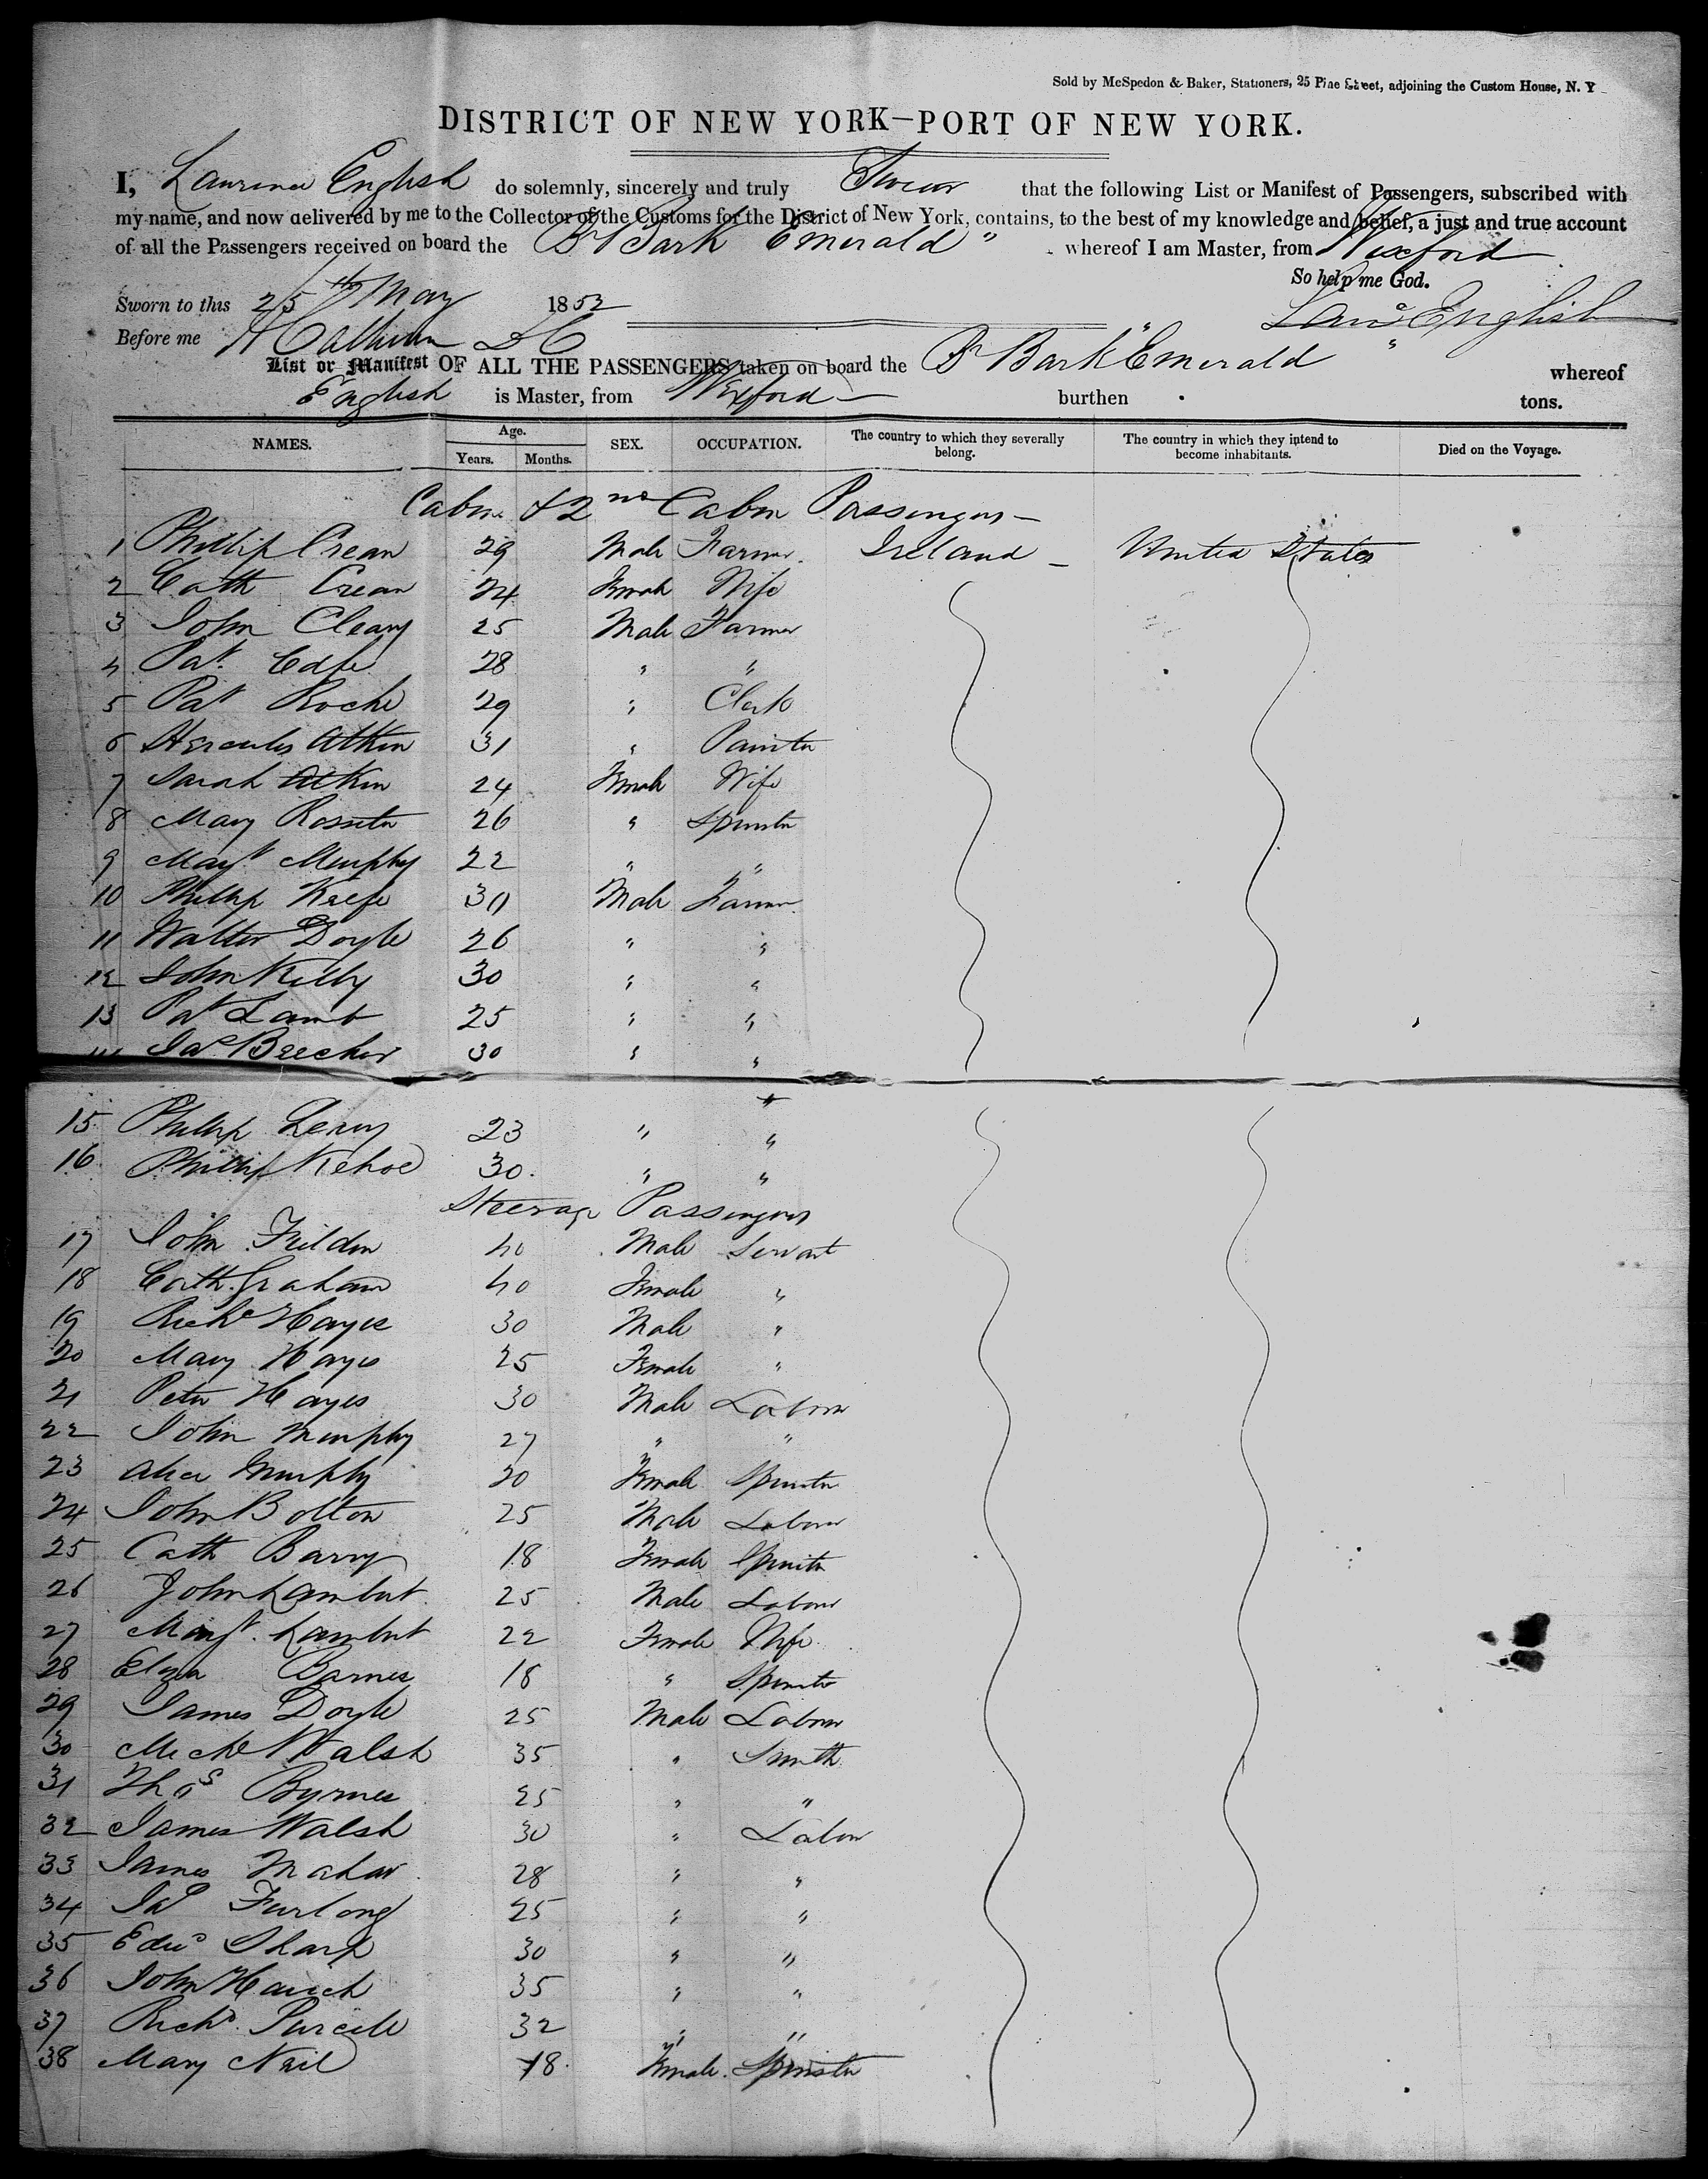 Sold by McSpedon & Baker, Stationers, 25 Pine Street, adjoining the Custom House, N. Y
DISTRICT OF NEW YORK—PORT OF NEW YORK.
I, Laurence English do solemnly, sincerely and truly Swear that the following List or Manifest of Passengers, subscribed with
my name, and now delivered by me to the Collector of the Customs for the District of New York, contains, to the best of my knowledge and belief, a just and true account
of all the Passengers received on board the Br Bark Emerald " whereof I am Master, from Wexford
So help me God.
Sworn to this 25th May 1852
Lauce English
Before me
List or Manifest OF ALL THE PASSENGERS taken on board the Br Bark "Emerald" whereof
English is Master, from Wexford burthen tons.
NAMES. Age. SEX. OCCUPATION. The country to which they severally belong. The country in which they intend to become inhabitants. Died on the Voyage.
Years. Months.
Cabin & 2nd Cabin Passengers
1 Phillip Crean 29 Male Farmer Ireland United States
2 Cath Crean 24 Female Wife
3 John Cleary 25 Male Farmer
4 Pat 28 " "
5 Pat Roche 29 " Clerk
6 Hercules Atkin 31 " Painter
7 Sarah Atkin 24 Female Wife
8 Mary Rossiter 26 " Spinster
9 Margt Murphy 22 " "
10 Phillip Keefe 30 Male Farmer
11 Walter Doyle 26 " "
12 John Kelly 30 " "
13 Pat Lamb 25 " "
14 Jas Beecher 30 " "
15 Phillip Leary 23 " "
16 Phillip Kehoe 30 " "
Steerage Passengers
17 John 40 Male Servant
18 Cath Graham 40 Female "
19 Richd Hayes 30 Male "
20 Mary Hayes 25 Female "
21 Peter Hayes 30 Male Labour
22 John Murphy 27 " "
23 Alice Murphy 20 Female Spinster
24 John Bolton 25 Male Labour
25 Cath Barry 18 Female Spinster
26 John Lambert 25 Male Labour
27 Margt Lambert 22 Female Wife
28 Eliza Barnes 18 " Spinster
29 James Doyle 25 Male Labour
30 Michl Walsh 35 " Smith
31 Thos Byrnes 25 " "
32 James Walsh 30 " Labour
33 James Mahar 28 " "
34 Jas Furlong 25 " "
35 Edwd Sharp 30 " "
36 John 35 " "
37 Richd Purcell 32 " "
38 Mary Neil 18 Female Spinster